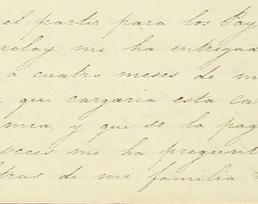 el partir para los Pay
me ha entregad
a cuatro meses de m
que cargaria esta ca
mia, y que se la pag
veces me ha pregunt
de mi familia